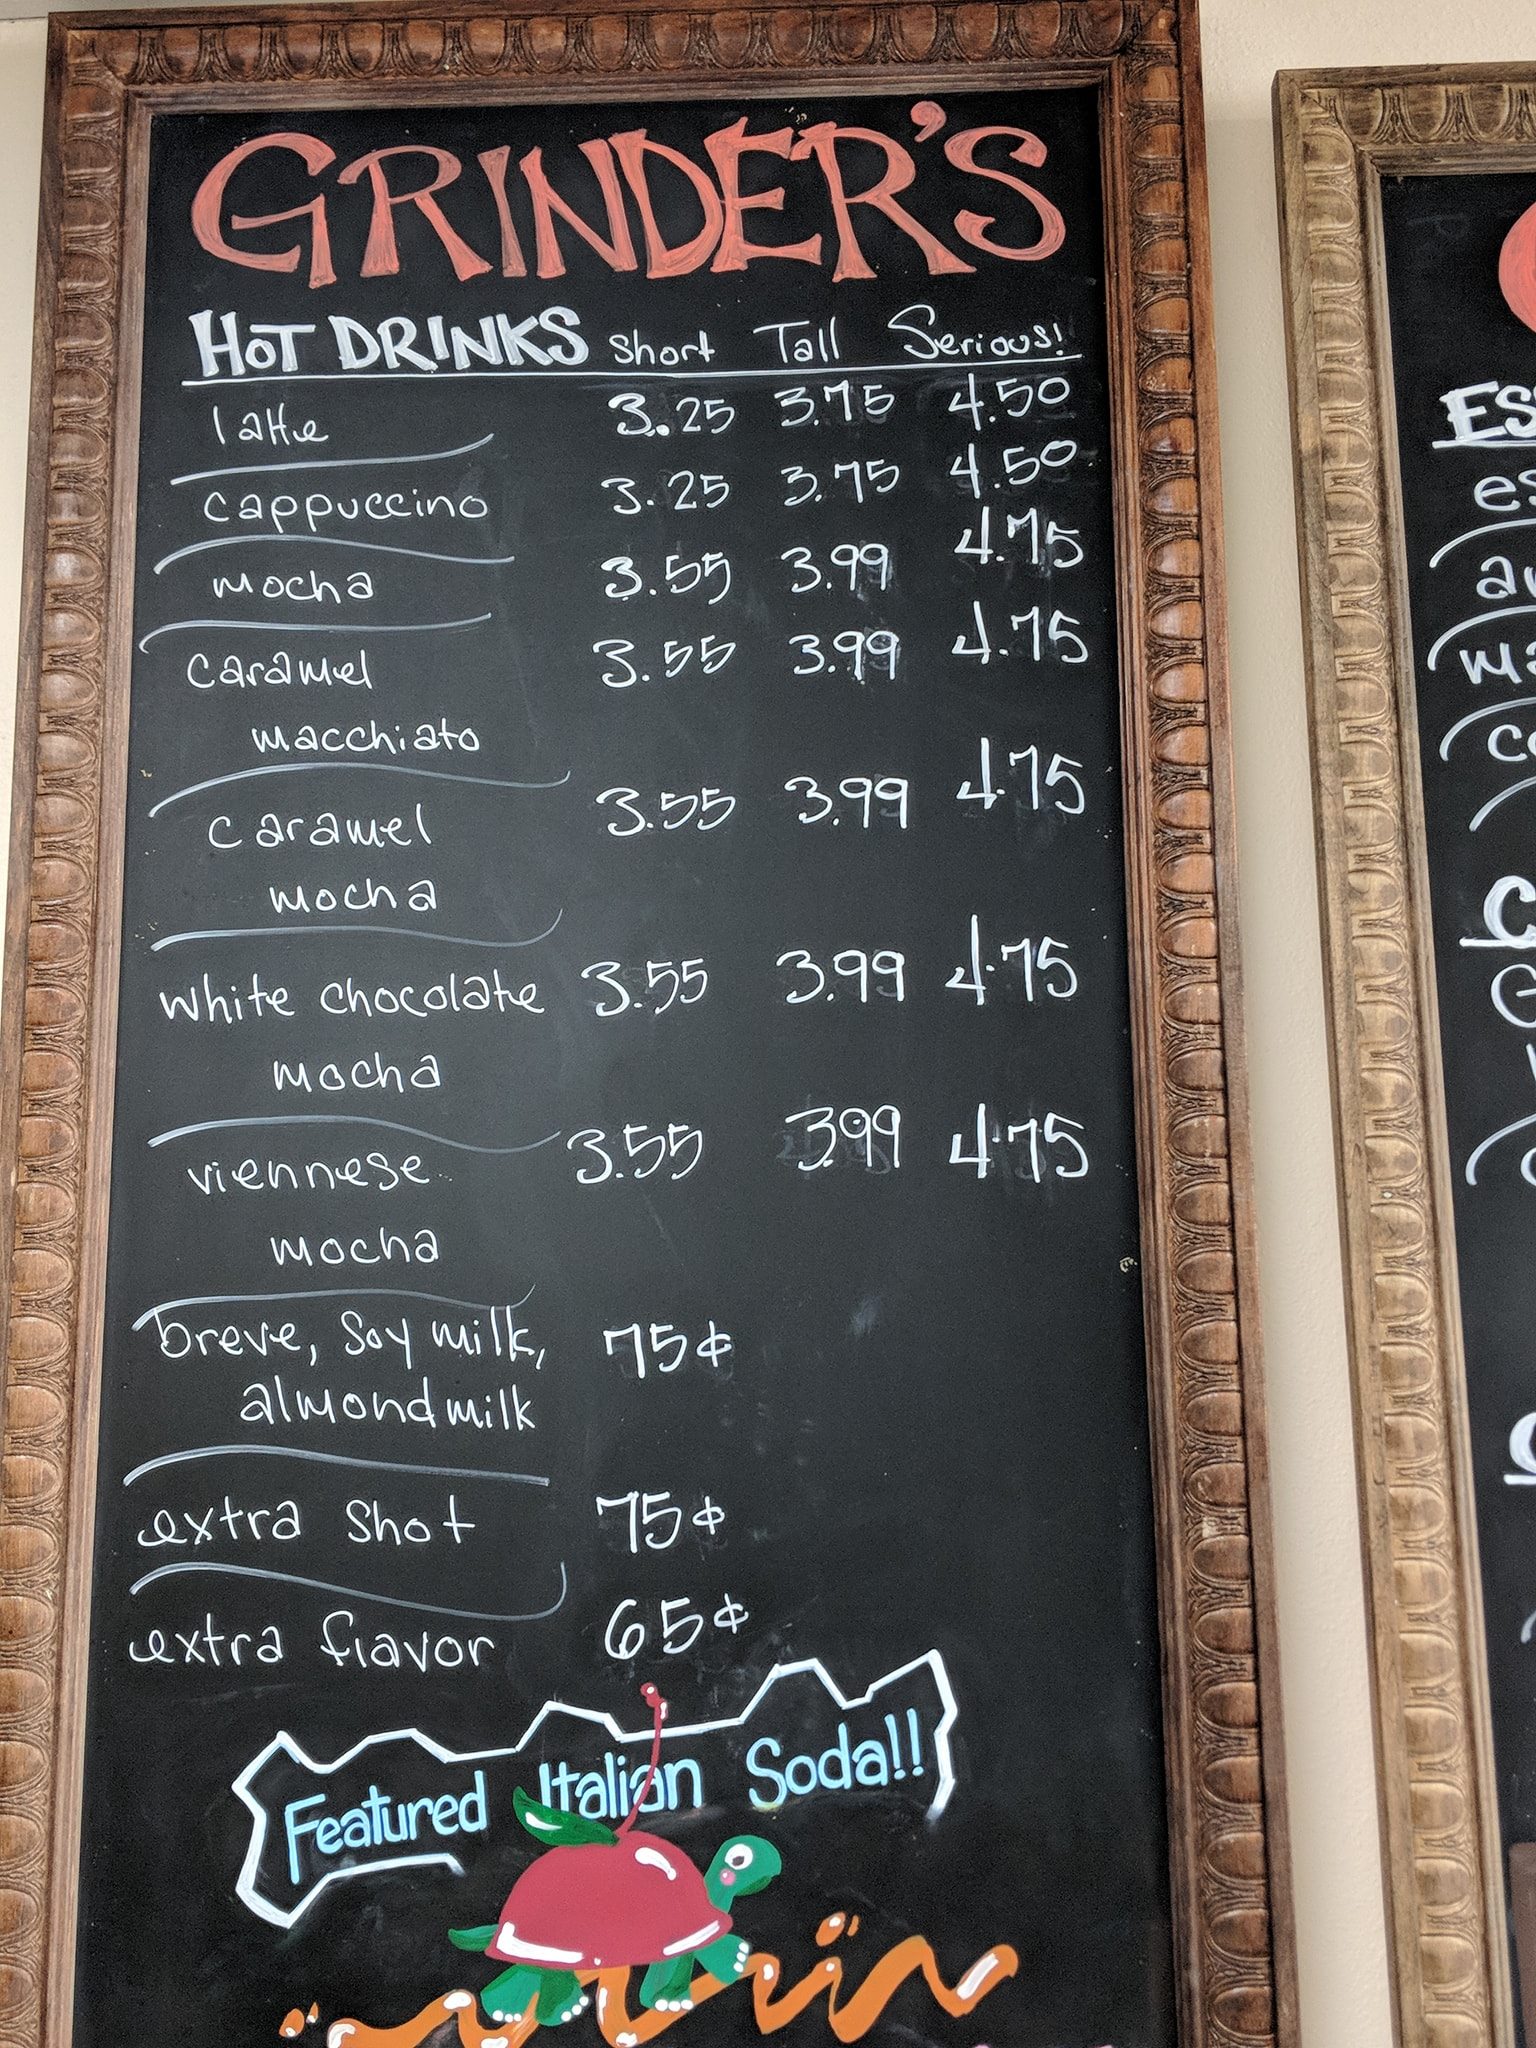 GRINDER'S
HOT DRINKS Short Tall Serious!
latte 3.25 3.75 4.50
cappuccino 3.25 3.75 4.50
mocha 3.55 3.99 4.75
caramel 3.55 3.99 4.75
macchiato
caramel 3.55 3.99 4.75
mocha
white chocolate 3.55 3.99 4.75
mocha
viennese 3.55 3.99 4.75
mocha
breve, soy milk, 75¢
almond milk
extra shot 75¢
extra flavor 65¢
Featured Italian Soda!!